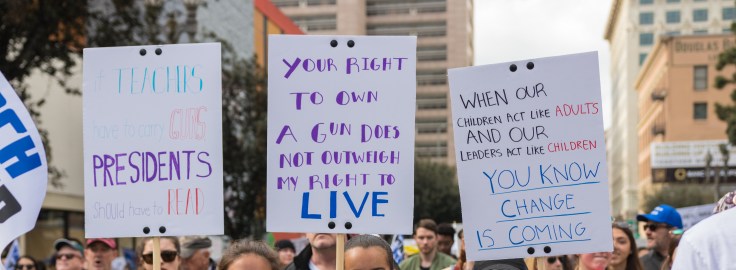 if TEACHERS
have to carry GUNS
PRESIDENTS
should have to READ
YOUR RIGHT
TO OWN
A GUN DOES
NOT OUTWEIGH
MY RIGHT TO
LIVE
WHEN OUR
CHILDREN ACT LIKE ADULTS
AND OUR
LEADERS ACT LIKE CHILDREN
YOU KNOW
CHANGE
IS COMING
DOUGLAS